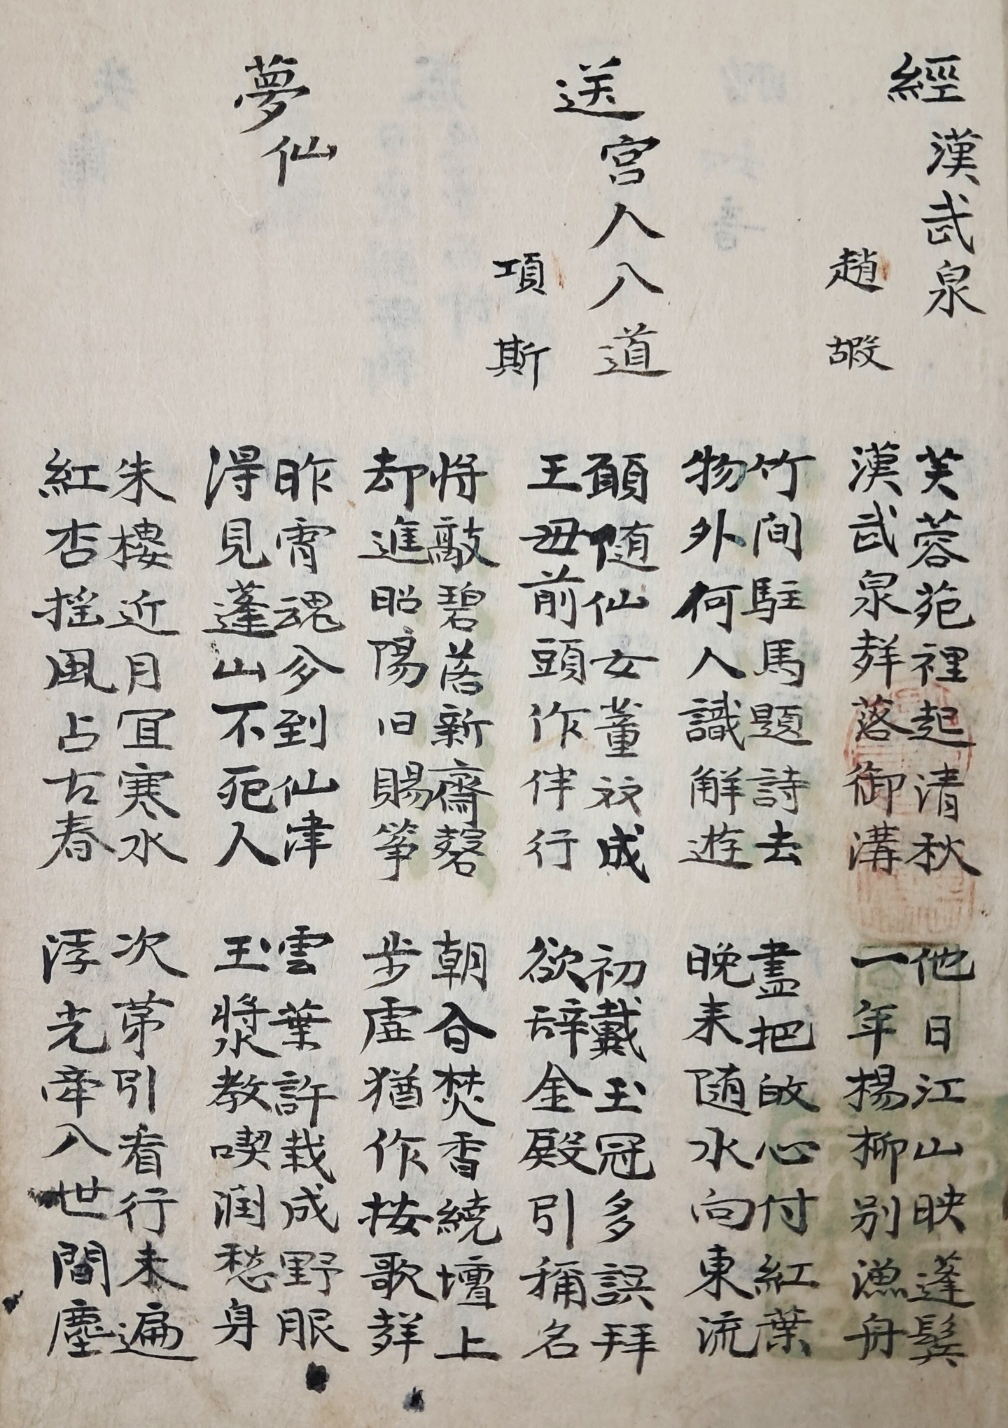 經漢武泉
趙嘏
芙蓉苑裡起清秋
漢武泉聲落御溝
他日江山映蓬鬢
一年楊柳别漁舟
竹間駐馬題詩去
物外何人識解遊
盡把故心付紅葉
晚来随水向東流
送宮人入道
項斯
願随仙女董双成
王母前頭作伴行
初戴玉冠多誤拜
欲辞金殿引稱名
将敲碧落新齋磬
却進昭陽旧賜筝
朝昏焚香繞壇上
步虚猶作按歌聲
夢仙
昨宵魂夢到仙津
得見蓬山不死人
雲葉許裁成野服
玉漿教喫潤愁身
朱樓近月宜寒水
紅杏揺風占古春
次第引看行未遍
浮光牽入世間塵